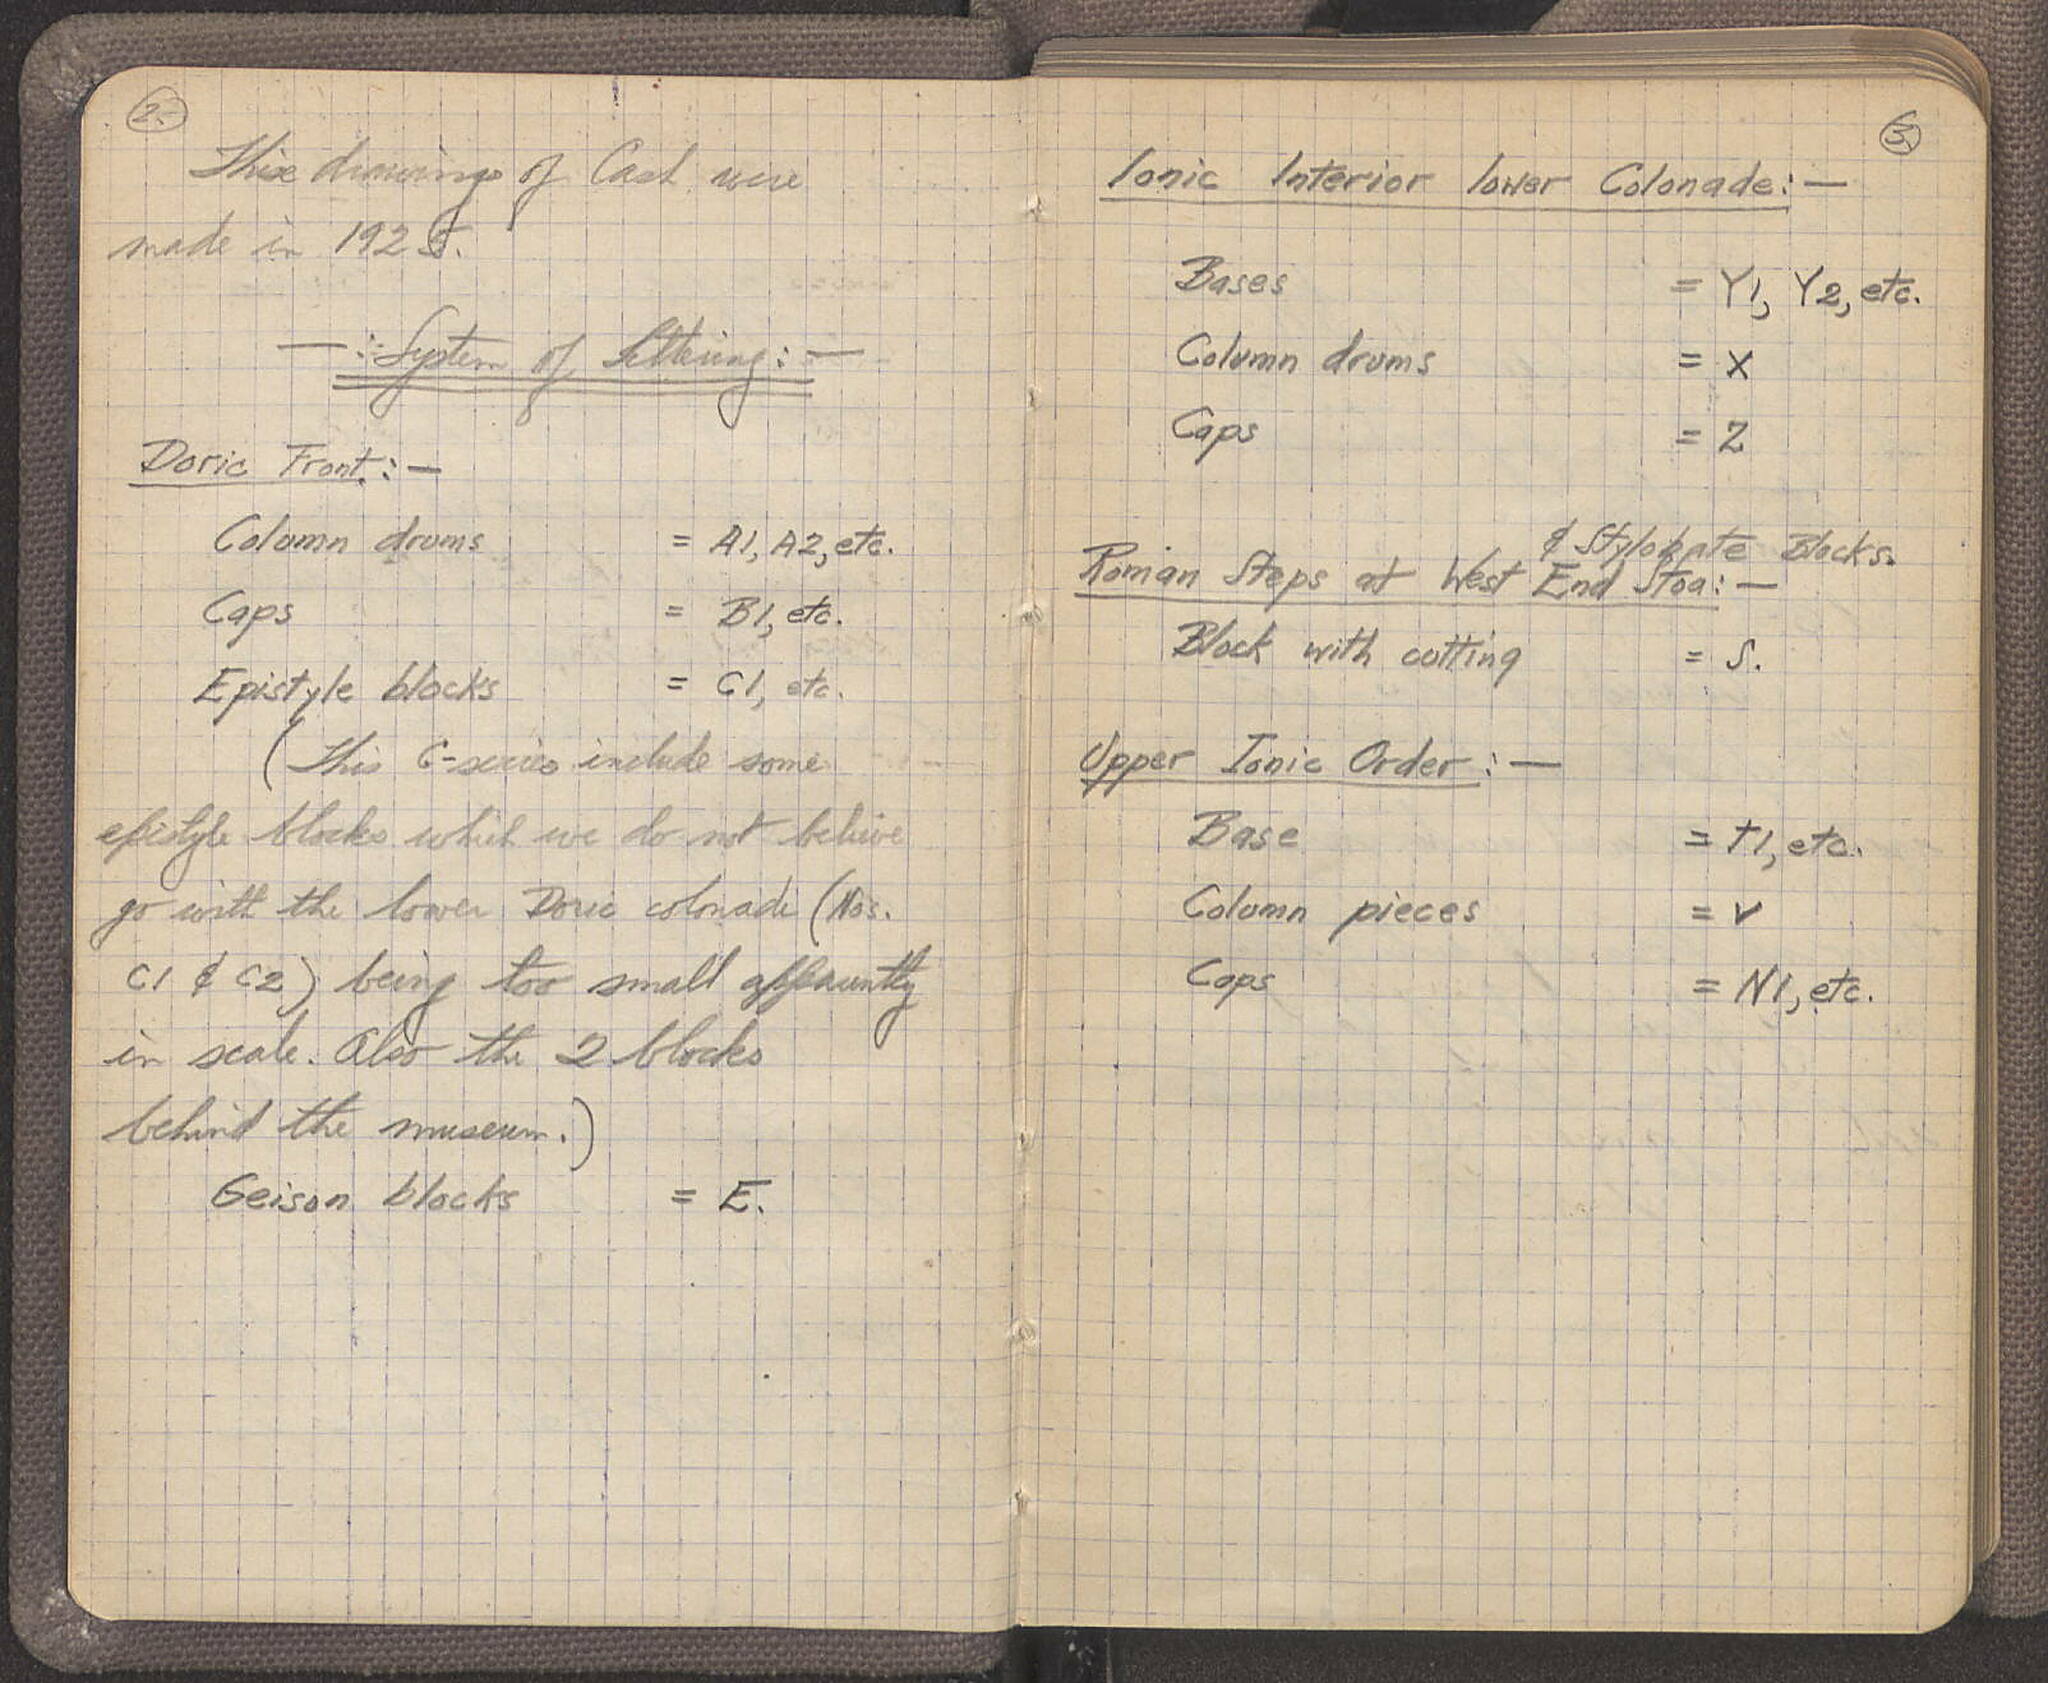 2.-
These drawings of Cast were
made in 1925.
—:System of Lettering:—
Doric Front:—
Column drums = A1, A2, etc.
Caps = B1, etc.
Epistyle blocks = C1, etc.
(This C-series include some
epistyle blocks which we do not believe
go with the lower Doric colonade (Nos.
C1 & C2) being too small apparently
in scale. Also the 2 blocks
behind the museum.)
Geison blocks = E.
3.
Ionic Interior lower Colonade:—
Bases = Y1, Y2, etc.
Column drums = X
Caps = Z
& Stylobate Blocks.
Roman Steps at West End Stoa:—
Block with cutting = S.
Upper Ionic Order:—
Base = T1, etc.
Column pieces = V
Caps = N1, etc.